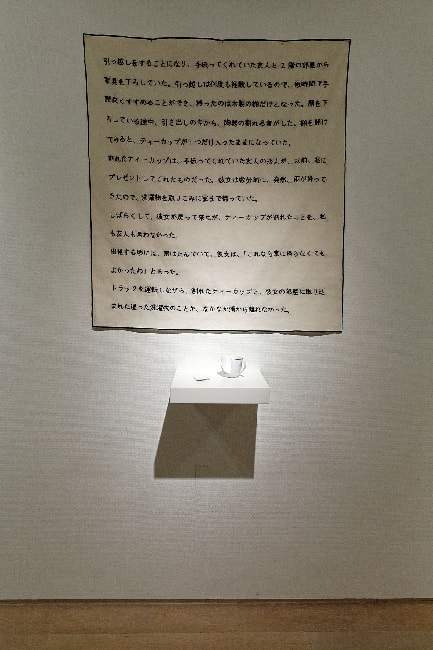 引っ越しをすることになり、手伝ってくれていた友人と2階の部屋から
家具を下ろしていた。引っ越しは何度も経験しているので、短時間で手
際良くすすめることができ、残ったのは木製の棚だけとなった。棚を下
ろしている途中、引き出しの中から、陶器の割れる音がした。棚を開け
てみると、ティーカップが一つだけ入ったままになっていた。
割れたティーカップは、手伝ってくれていた友人の恋人が、以前、私に
プレゼントしてくれたものだった。彼女は数分前に、突然、雨が降って
きたので、洗濯物を取りこみに家まで帰っていた。
しばらくして、彼女が戻って来たが、ティーカップが割れたことを、私
も友人も言わなかった。
出発する時には、雨はやんでいて、彼女は、「これなら家に帰らなくても
よかったね」と言った。
トラックを運転しながら、割れたティーカップと、彼女の部屋に取り込
まれた湿った洗濯物のことが、なかなか頭から離れなかった。